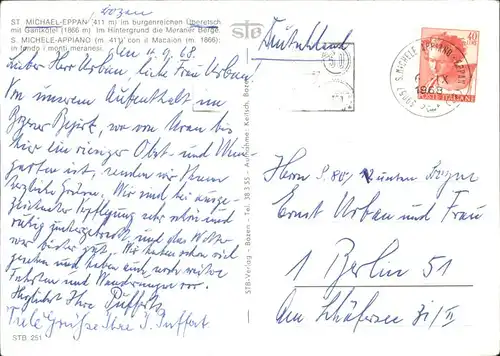 Bozen
ST. MICHAEL-EPPAN (411 m) im burgenreichen Überetsch
mit Gantkofel (1866 m). Im Hintergrund die Meraner Berge.
S. MICHELE-APPIANO (m. 411) con il Macaion (m. 1866);
in fondo i monti meranesi.
den 4.9.68.
Lieber Herr Urban, liebe Frau Urban.
Von unserem Aufenthalt im
Bozener Bezirk, wo von Meran bis
hier ein riesiger Obst- und Wein-
garten ist, senden wir Ihnen
herzliche Grüsse. Wir sind bei ausge-
zeichneter Verpflegung sehr schön und
ruhig untergebracht und das Wetter
war bisher gut. Wir haben schon viel
gesehen und haben auch noch weitere
Fahrten und Wanderungen vor.
Herzlichst Ihre
Viele Grüsse Ihre
STB 251
STB-Verlag - Bozen - Tel. 38 3 55 - Aufnahme: Keitsch, Bozen
STB
Deutschland
39057 S. MICHELE APPIANO EPPAN
IX
1968
40
POSTE ITALIANE
Herrn
Ernst Urban und Frau
1 Berlin 51
Am Schäfersee 31/II